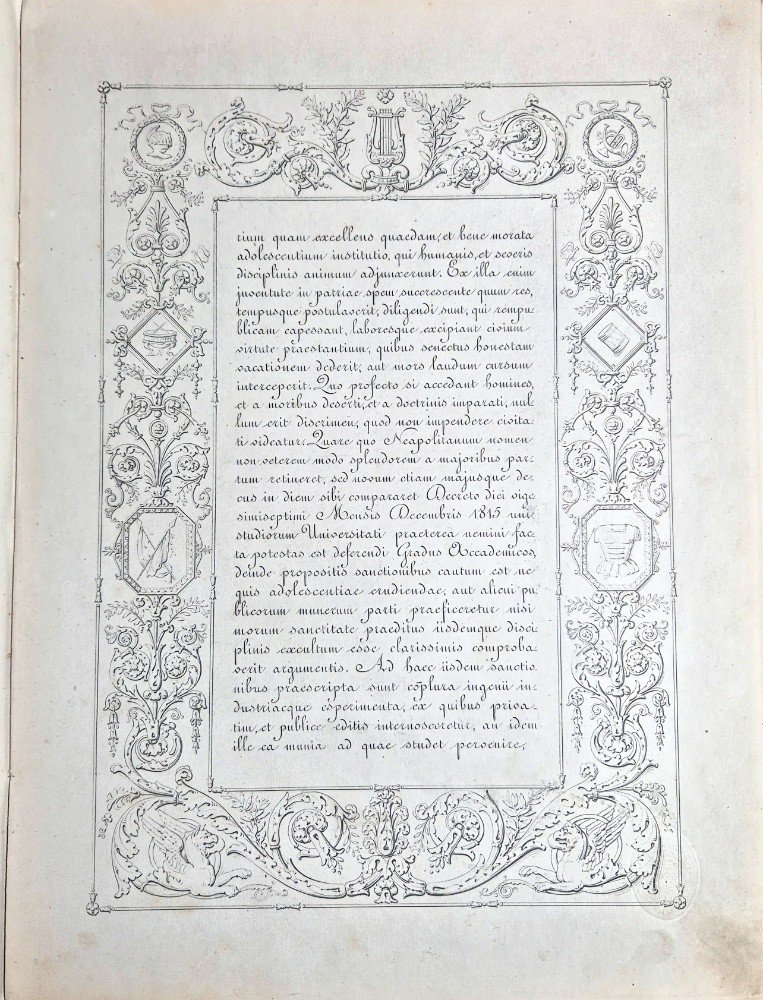 rium quam excellens quaedam, et bene morata
adolescentium institutio, qui humanis, et severis
disciplinis animum adjunxerunt. Ex illa enim
juventute in patriae spem succrescente quum res,
tempusque postulaverit, diligendi sunt, qui rempu
blicam capessant, laboresque excipiant civium
virtute praestantium, quibus senectus honestam
vacationem dederit, aut mors laudum cursum
interceperit. Quo profecto si accedant homines,
et a moribus deserti, et a doctrinis imparati, nul
lum erit discrimen, quod non impendere civita
ti videatur. Quare quo Neapolitanum nomen
non veterem modo splendorem a majoribus par
tum retineret, sed novum etiam majusque de
cus in diem sibi compararet Decreto diei vige
simiseptimi Mensis Decembris 1815 uni
studiorum Universitati praeterea nemini fac
ta potestas est deferendi Gradus Accademicos,
deinde propositis sanctionibus cautum est ne
quis adolescentiae erudiendae, aut alicui pu
blicorum munerum parti praeficeretur nisi
morum sanctitate praeditus iisdemque disci
plinis excultum esse clarissimis comproba
verit argumentis. Ad haec iisdem sanctio
nibus praescripta sunt coplura ingenii in
dustriaeque esperimenta, ex quibus priva
tim, et publice editis internosceretur, an idem
ille ea munia ad quae studet pervenire,